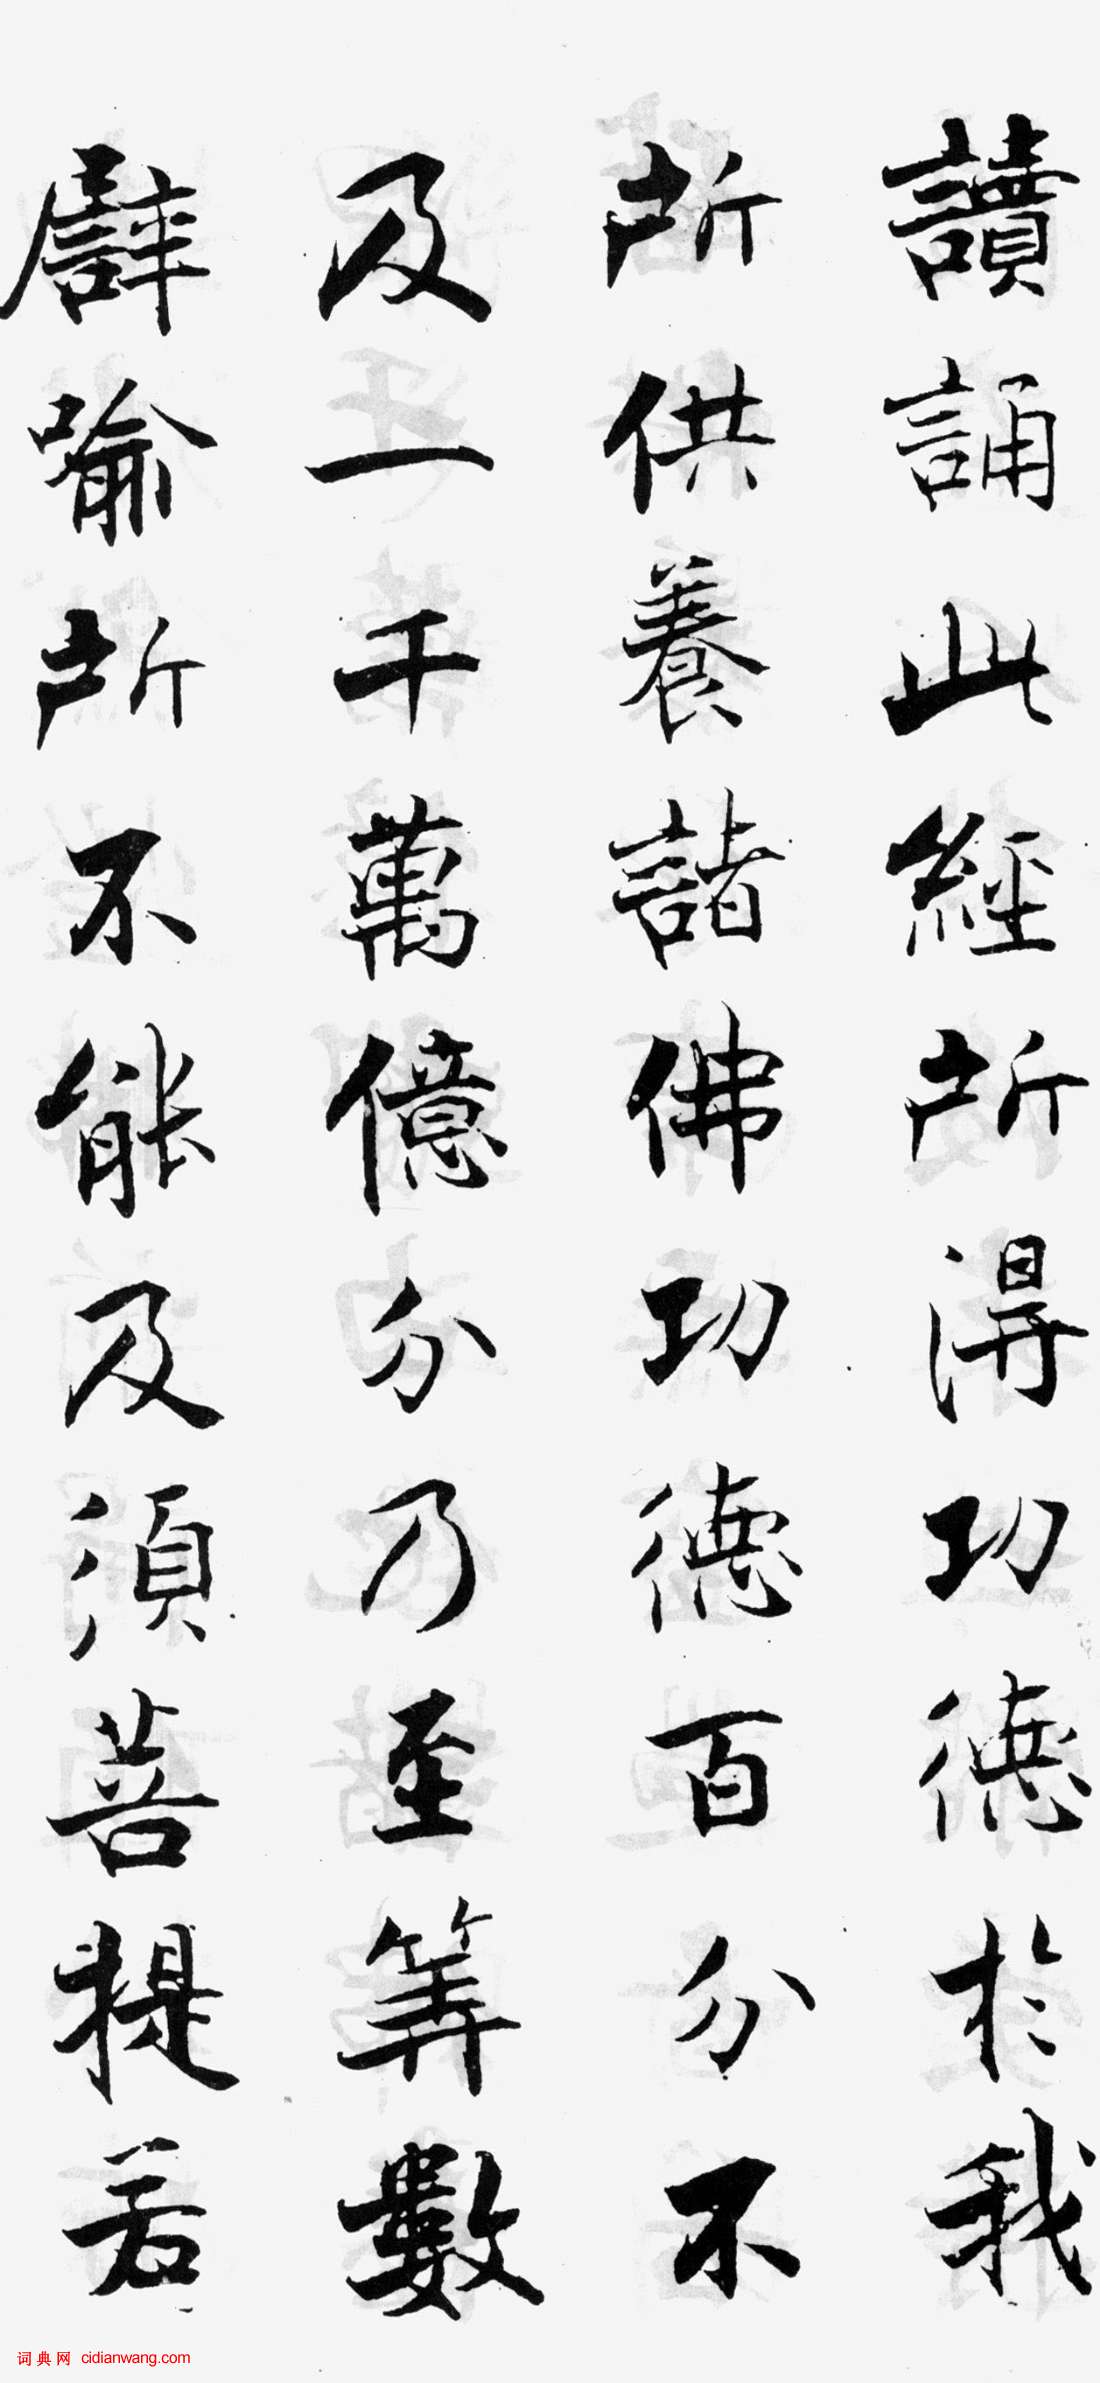 讀誦此經所得功德於我
所供養諸佛功德百分不
及一千萬億分乃至筭數
譬喻所不能及須菩提若
词典网 cidianwang.com